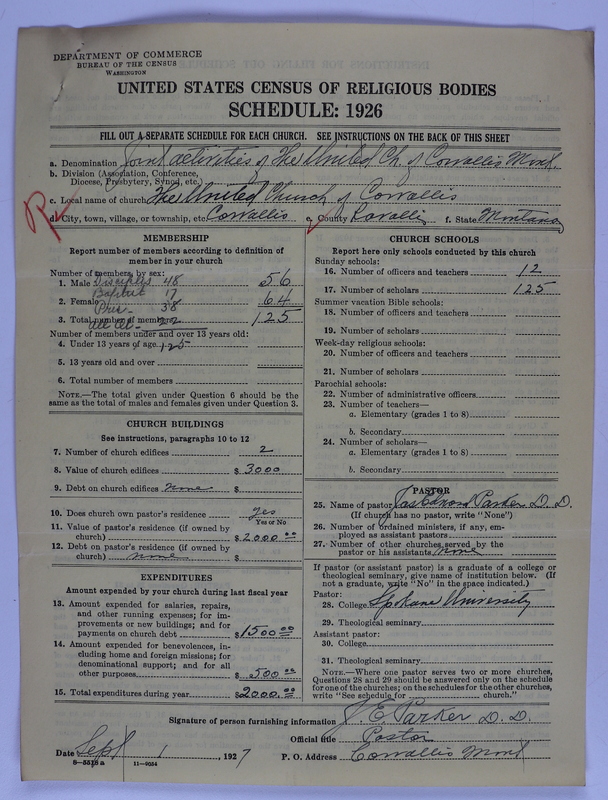 DEPARTMENT OF COMMERCE
BUREAU OF THE CENSUS
WASHINGTON
UNITED STATES CENSUS OF RELIGIOUS BODIES
SCHEDULE: 1926
FILL OUT A SEPARATE SCHEDULE FOR EACH CHURCH. SEE INSTRUCTIONS ON THE BACK OF THIS SHEET
a. Denomination Joint activities of The United Ch. of Corvallis Mont.
b. Division (Association, Conference,
Diocese, Presbytery, Synod, etc.)
c. Local name of church The United Church of Corvallis
d. City, town, village, or township, etc. Corvallis e. County Ravalli f. State Montana
MEMBERSHIP
Report number of members according to definition of
member in your church
Number of members by sex:
1. Male Disciples 48 56
Baptist 17
2. Female 64
Pres- 38
3. Total number of members 125
All Others 22
Number of members under and over 13 years old:
4. Under 13 years of age 125
5. 13 years old and over
6. Total number of members
NOTE.—The total given under Question 6 should be
same as the total of males and females given under Question 3.
CHURCH BUILDINGS
See instructions, paragraphs 10 to 12
7. Number of church edifices 2
8. Value of church edifices $ 3000
9. Debt on church edifices none $
10. Does church own pastor's residence yes
Yes or No
11. Value of pastor's residence (if owned by
church) $ 2000.00
12. Debt on pastor's residence (if owned by
church) none $
EXPENDITURES
Amount expended by your church during last fiscal year
13. Amount expended for salaries, repairs,
and other running expenses; for im-
provements or new buildings; and for
payments on church debt $ 1500.00
14. Amount expended for benevolences, in-
cluding home and foreign missions; for
denominational support; and for all
other purposes $ 500.00
15. Total expenditures during year $ 2000.00
CHURCH SCHOOLS
Report here only schools conducted by this church
Sunday schools:
16. Number of officers and teachers 12
17. Number of scholars 125
Summer vacation Bible schools:
18. Number of officers and teachers
19. Number of scholars
Week-day religious schools:
20. Number of officers and teachers
21. Number of scholars
Parochial schools:
22. Number of administrative officers
23. Number of teachers—
a. Elementary (grades 1 to 8)
b. Secondary
24. Number of scholars—
a. Elementary (grades 1 to 8)
b. Secondary
PASTOR
25. Name of pastor Jas Edward Parker D. D.
(If church has no pastor, write "None")
26. Number of ordained ministers, if any, em-
ployed as assistant pastors
27. Number of other churches served by the
pastor or his assistants none
If pastor (or assistant pastor) is a graduate of a college or
theological seminary, give name of institution below. (If
not a graduate, write "No" in the space indicated.)
Pastor:
28. College Spokane University
29. Theological seminary
Assistant pastor:
30. College
31. Theological seminary
NOTE.—Where one pastor serves two or more churches,
Questions 28 and 29 should be answered only on the schedule
for one of the churches; on the schedules for the other churches,
write "See schedule for church."
Signature of person furnishing information J. E. Parker D. D.
Official title Pastor
Date Sept 1, 1927 P. O. Address Corvallis Mont
8-5518 a 11-9684